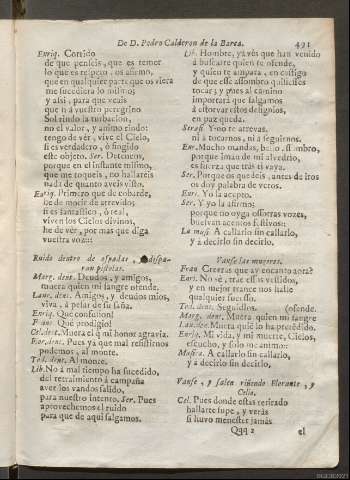 De D. Pedro Calderon de la Barca. 491
Enriq. Corrido
de que penseis, que es temor
lo que es respeto, os afirmo,
que en qualquiera parte que os viera
me sucediera lo mismo;
y assi, para que veais
que n à vuestro peregrino
Sol rindo la turbacion,
no el valor, y animo rindo:
tengo de vèr, vive el Cielo,
si es verdadero, ò fingido
este objeto. Ser. Detenèos,
porque en el instante mismo,
que me toqueis, no hallareis
nada de quanto aveis visto.
Enriq. Primero que de cobarde,
he de morir de atrevido;
si es fantastico, ò real,
viven los Cielos divinos,
he de vèr, por mas que diga
vuestra voz:::
Ruido dentro de espadas, y dispa-
ran pistolas.
Marg. dent. Deudos, y amigos,
muera quien mi sangre ofende.
Laur. dent. Amigos, y deudos mios,
viva, à pesar de su saña.
Enriq. Què confusion!
Franc. Què prodigio!
Cel. dent. Muera el q̃ mi honor agravia.
Flor. dent. Pues yà que mal resistirnos
podemos, al monte.
Tod. dent. Al monte.
Lib. No à mal tiempo ha sucedido,
del retraimiento à campaña
aver los vandos salido,
para nuestro intento. Ser. Pues
aprovechemos el ruido
para que de aqui salgamos.
Lib. Hombre, yà vès que han venido
à buscarte quien te ofende,
y quien te ampara, en castigo
de que esse assombro quisiesses
tocar; y pues al camino
importarà que salgamos
à estorvar estos designios,
en paz queda.
Seraf. Y no te atrevas,
ni à tocarnos, ni à seguirnos.
Enr. Mucho mandas, bello assombro,
porque iman de mi alvedrio,
es fuerza que tràs tì vaya.
Ser. Porque os quedeis, antes de iros
os doy palabra de veros.
Enr. Yo la accepto.
Ser. Y yo la afirmo:
porque no oyga essotras vozes,
buelvan acentos festivos:
La musi. A callarlo sin callarlo,
y à decirlo sin decirlo.
Vanse las mugeres.
Fran. Creeràs que ay encanto aora?
Enri. No sè, tras essas vestidos,
y en mejor trance nos halle
qualquier sucesso.
Tod. dent. Seguidlos. (ofende.
Marg. dent. Muera quien mi sangre
Lau. den. Muera quiè lo ha pretèdido.
Enriq. Mi vida, y mi muerte, Cielos,
escucho, y solo me animo:
Musica. A callarlo sin callarlo,
y à decirlo sin decirlo.
Vanse, y salen riñendo Florante, y
Celio.
Cel. Pues donde estàs retirado
hallarte supe, y veràs
si huvo menester jamàs
Qqq 2 el